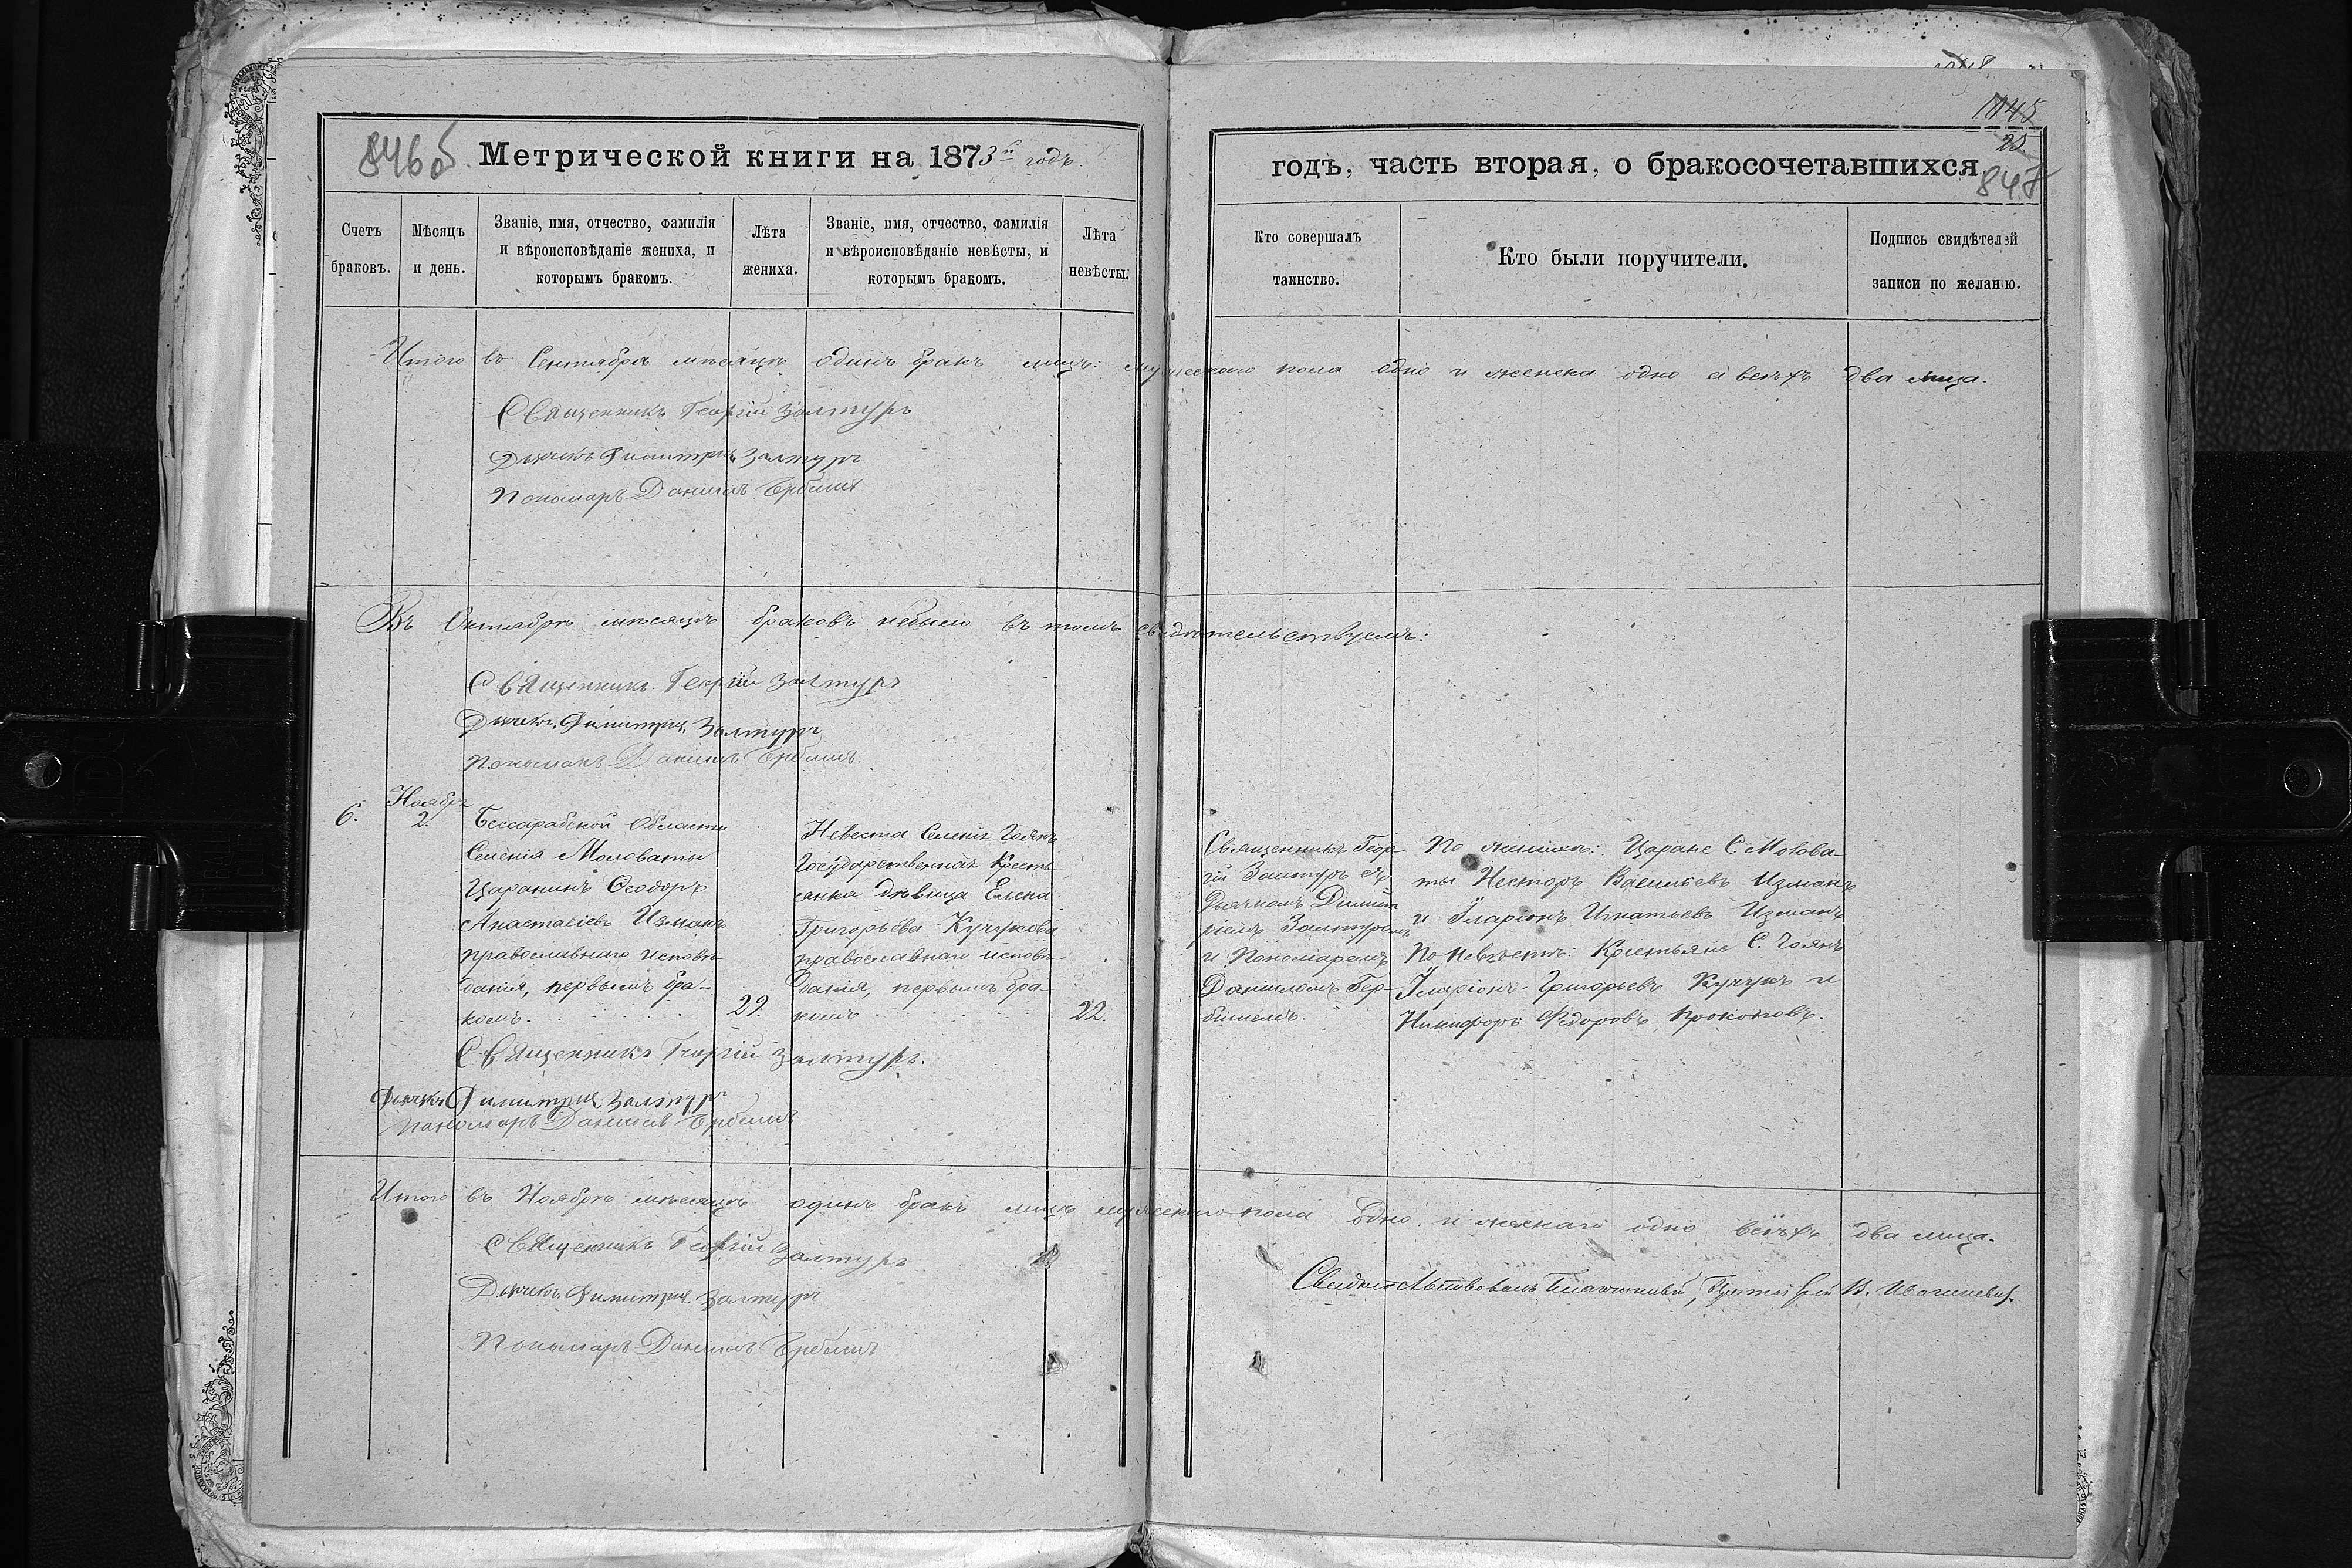 1848
1845
25
846об. Метрической книги на 1873й годъ.
годъ, часть вторая, о бракосочетавшихся
847
Счетъ браковъ.
Мѣсяцъ и день.
Званіе, имя, отчество, фамилія
и вѣроисповѣданіе жениха, и
которымъ бракомъ.
Лѣта жениха.
Званіе, имя, отчество, фамилія
и вѣроисповѣданіе невѣсты, и
которымъ бракомъ.
Лѣта невѣсты.
Кто совершалъ
таинство.
Кто были поручители.
Подпись свидѣтелей
записи по желанію.
Итого въ Сентябрѣ мѣсяцѣ одинъ бракъ лицъ: мужескаго пола одно и женска одно а всѣхъ два лица.
Священникъ Георгій Залтуръ
Дьячекъ Димитрий Залтуръ
Пономаръ Данiилъ Ербинъ
Въ Октябрѣ мѣсяцѣ браковъ небыло въ томъ свидѣтельствуемъ:
Священникъ Георгій Залтуръ
Дьячекъ Димитрий Залтуръ
Пономаръ Данiилъ
6.
Ноябрь
2.
Бессарабской Области
Селенія Моловаты
Царанинъ Ѳеодоръ
Анастасіевъ Изманъ
православнаго исповѣ-
данія, первымъ бра-
комъ.
29.
Невеста Селенія Гоянъ
Государственная Кресть
янка дѣвица Елена
Григорьева Кучукова
православнаго исповѣ
данія, первымъ бра
комъ
22.
Священникъ Геор-
гій Залтуръ съ
Дьячкомъ Димит
ріемъ Залтуромъ
и Пономаремъ
Даниломъ Гер-
бинемъ.
По женихѣ: Царане С. Молова-
ты Несторъ Василіевъ Изманъ
и Іларіонъ Игнатьевъ Изманъ
По невѣстѣ: Крестьяне С. Гоянъ
Іларіонъ Григорьевъ Кучукъ и
Никифоръ Федоровъ Прокоповъ.
Священникъ Георгій Залтуръ.
Дьячекъ Димитрий Залтуръ
Пономаръ Данiилъ
Итого въ Ноябрѣ мѣсяцѣ одинъ бракъ лицъ мужескаго пола одно и женскаго одно всѣхъ два лица.
Священникъ Георгій Залтуръ
Дьячекъ Димитрий Залтуръ
Пономаръ Данiилъ
Свидѣтельствовалъ Благочинный, Протоіерей